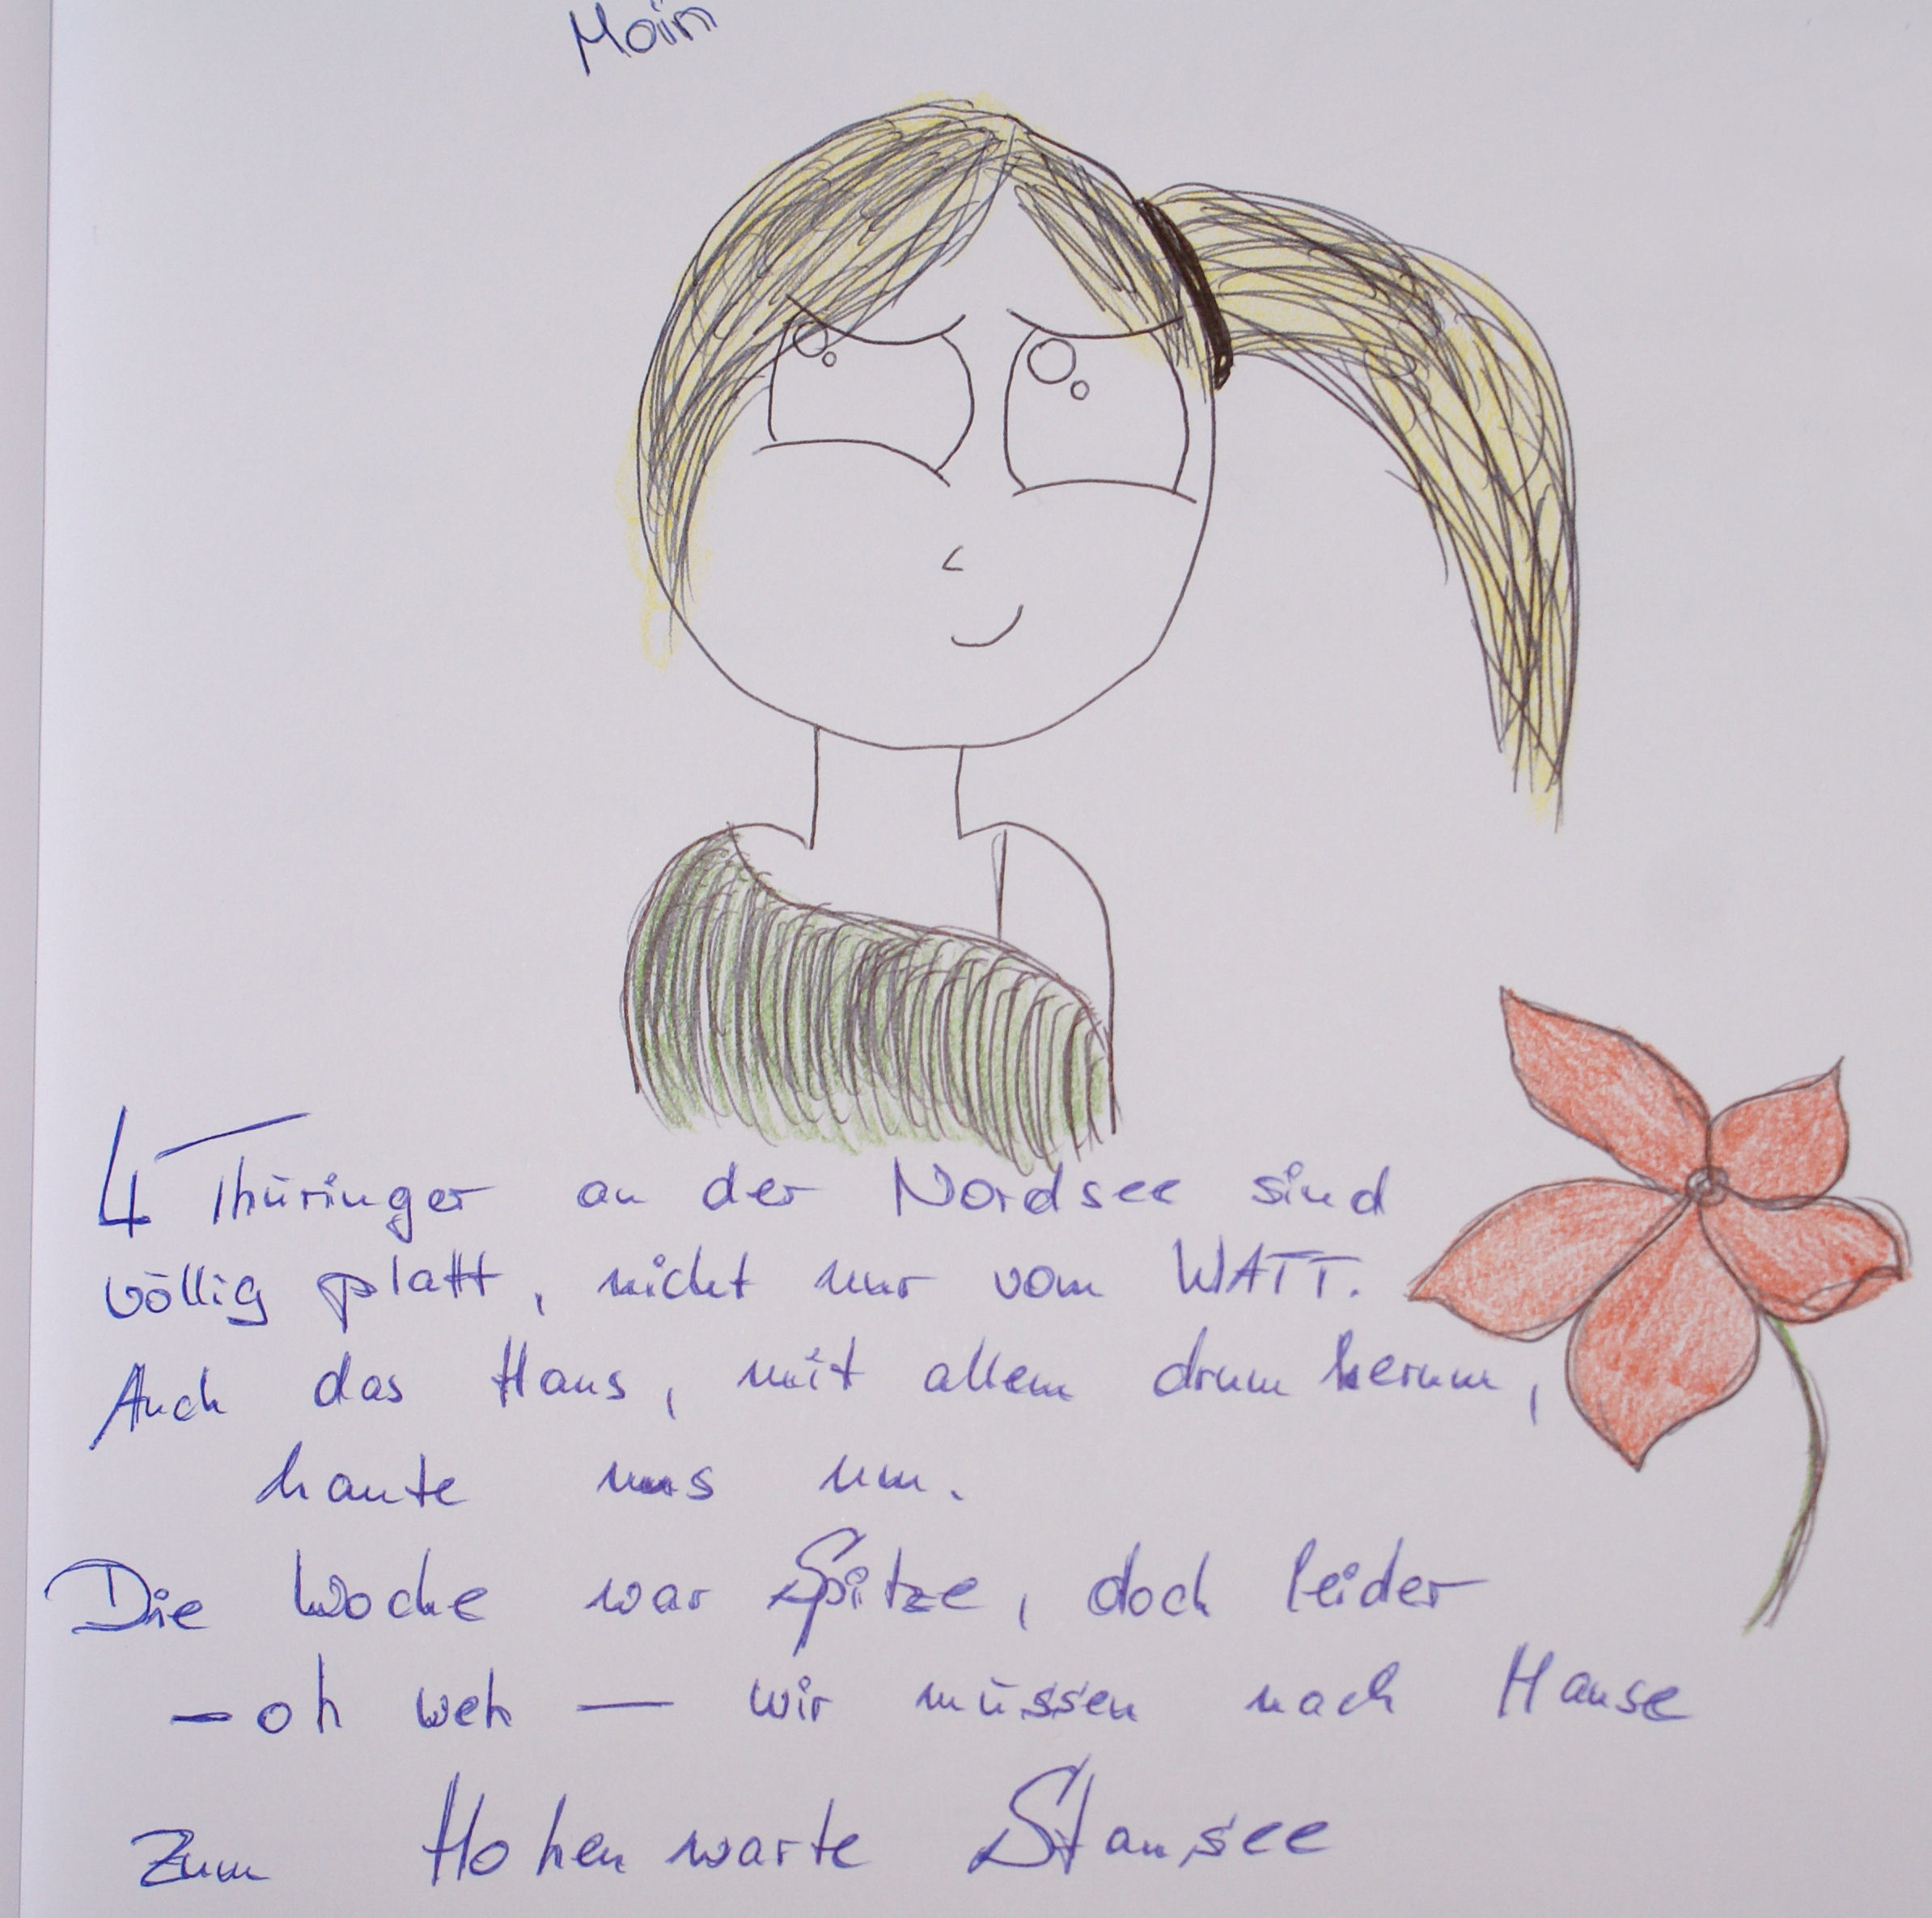 Moin
4 Thüringer an der Nordsee sind
völlig platt, nicht nur vom WATT.
Auch das Haus, mit allem drum herum,
haute uns um.
Die Woche war Spitze, doch leider
- oh weh - wir müssen nach Hause
zum Hohenwarte Stausee